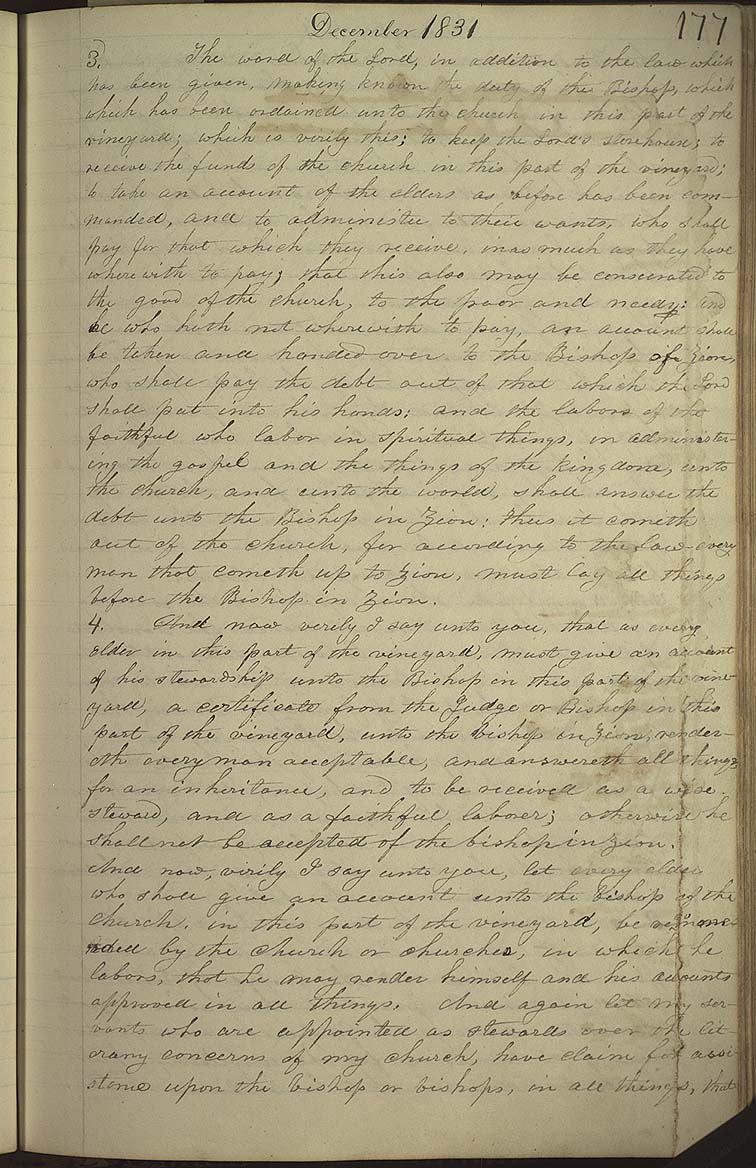 December 1831
177
3. The word of the Lord, in addition to the law which
has been given, making known the duty of the Bishop, which
which has been ordained unto the church in this part of the
vineyard; which is verily this; to keep the Lord's storehouse; to
receive the funds of the church in this part of the vineyard;
to take an account of the elders as before has been com-
manded, and to administer to their wants, who shall
pay for that which they receive, inas much as they have
wherewith to pay; that this also may be consecrated to
the good of the church, to the poor and needy: and
he who hath not wherewith to pay, an account shall
be taken and handed over to the Bishop of Zion,
who shall pay the debt out of that which the Lord
shall put into his hands: and the labors of the
faithful who labor in spiritual things, in administer-
ing the gospel and the things of the kingdom, unto
the church, and unto the world, shall answer the
debt unto the Bishop in Zion: thus it cometh
out of the church, for according to the law every
man that cometh up to Zion, must lay all things
before the Bishop in Zion.
4. And now verily I say unto you, that as every
elder in this part of the vineyard, must give an account
of his stewardship unto the Bishop in this part of the vine-
yard, a certificate from the Judge or Bishop in this
part of the vineyard, unto the bishop in Zion, render-
eth every man acceptable, and answereth all things
for an inheritance, and to be received as a wise
steward, and as a faithful laborer; otherwise he
shall not be accepted of the bishop in Zion.
And now, verily I say unto you, let every elder
who shall give an account unto the bishop of the
church, in this part of the vineyard, be
by the church or churches, in which he
labors, that he may render himself and his accounts
approved in all things. And again let my ser-
vants who are appointed as stewards over the lit-
erary concerns of my church, have claim for assi
stance upon the bishop or bishops, in all things, that